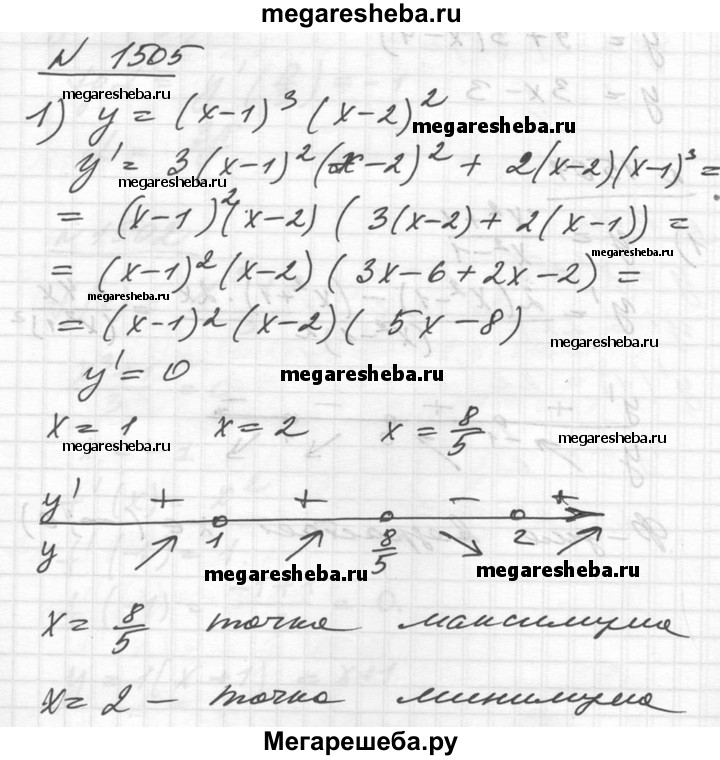 megaresheba.ru
N 1505
megaresheba.ru
1) y = (x-1)³ (x-2)²
megaresheba.ru
y' = 3(x-1)²(x-2)² + 2(x-2)(x-1)³ =
megaresheba.ru
= (x-1)²(x-2) (3(x-2) + 2(x-1)) =
megaresheba.ru
= (x-1)² (x-2) (3x-6+2x-2) =
megaresheba.ru
= (x-1)2 (x-2) (5x-8)
megaresheba.ru
y' = 0
megaresheba.ru
x = 1 x = 2 x = 8/5
megaresheba.ru
megaresheba.ru
y' + + - +
1 8/5 2
y ↗ ↗ ↘ ↗
megaresheba.ru
megaresheba.ru
x = 8/5 точка максимума
megaresheba.ru
x = 2 - точка минимума
megaresheba.ru
Мегарешеба.ру